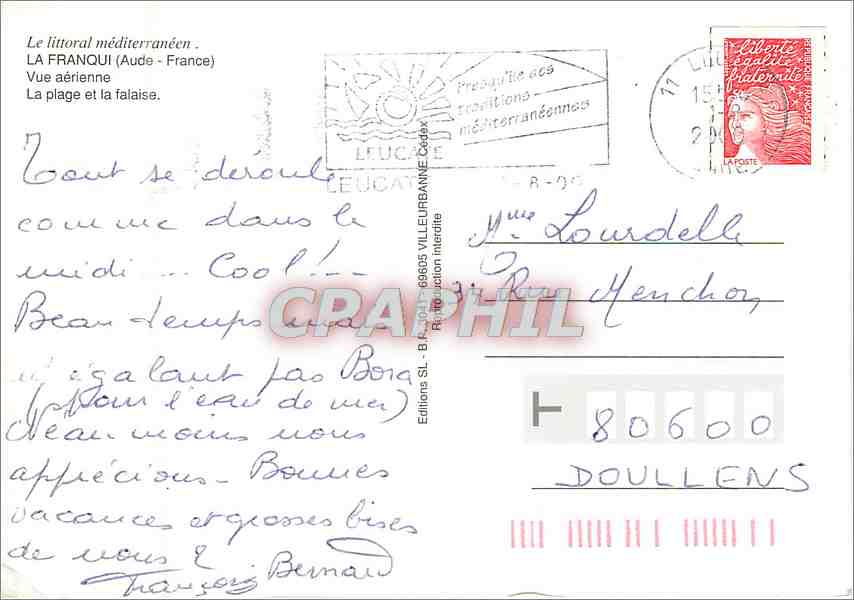 Le littoral méditerranéen .
LA FRANQUI (Aude - France)
Vue aérienne
La plage et la falaise.
Tout se deroule
comme dans le
midi ... Cool ! --
Beau temps mais
n'égalant pas Bora
(pour l'eau de mer)
Néan moins nous
apprécions - Bonnes
vacances et grosses bises
de nous 2
François Bernard
Editions SL - B.P. 3041 - 69605 VILLEURBANNE Cedex
Reproduction interdite
Presqu'ile aux
traditions
méditerranéennes
LEUCATE
LEUCATE
-8-00
11
15H
liberté
égalité
fraternité
RÉPUBLIQUE FRANÇAISE
LA POSTE
Mme Lourdelle
Rue Menchon
80600
DOULLENS
CPAPHIL